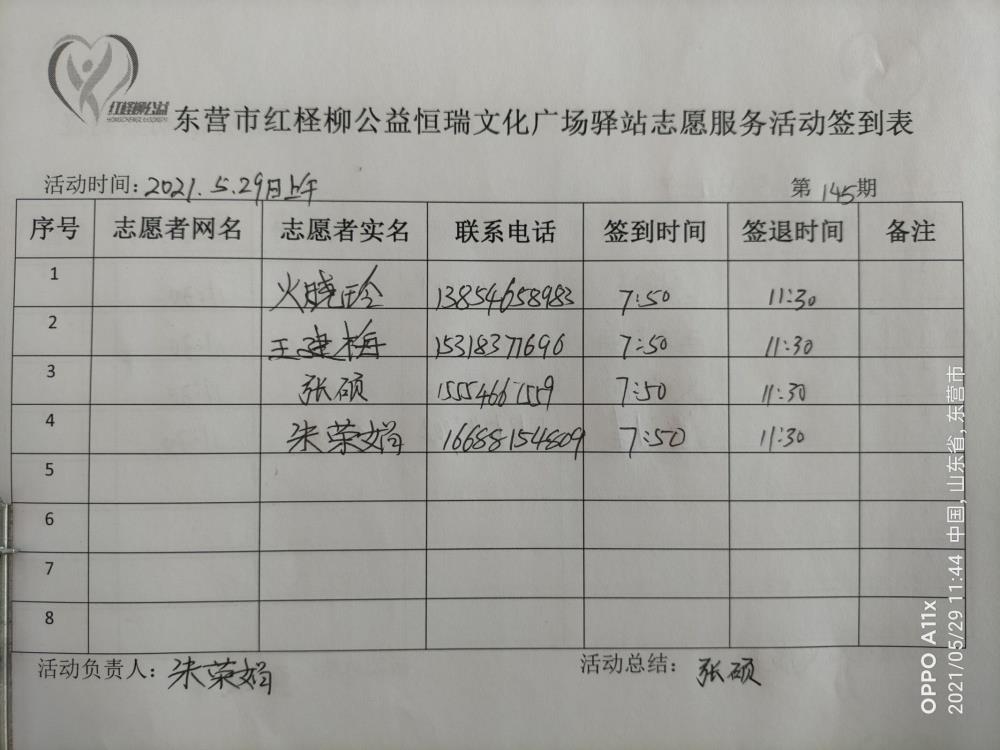 红柽柳公益
HONGCHENGLIUGONGYI
东营市红柽柳公益恒瑞文化广场驿站志愿服务活动签到表
活动时间：2021.5.29日上午 第145期
序号 志愿者网名 志愿者实名 联系电话 签到时间 签退时间 备注
1 火晓玲 13854658983 7:50 11:30
2 王建梅 15318371696 7:50 11:30
3 张硕 15554667559 7:50 11:30
4 朱荣娟 16688154809 7:50 11:30
5
6
7
8
活动负责人：朱荣娟 活动总结：张硕
OPPO A11x
2021/05/29 11:44 中国, 山东省, 东营市